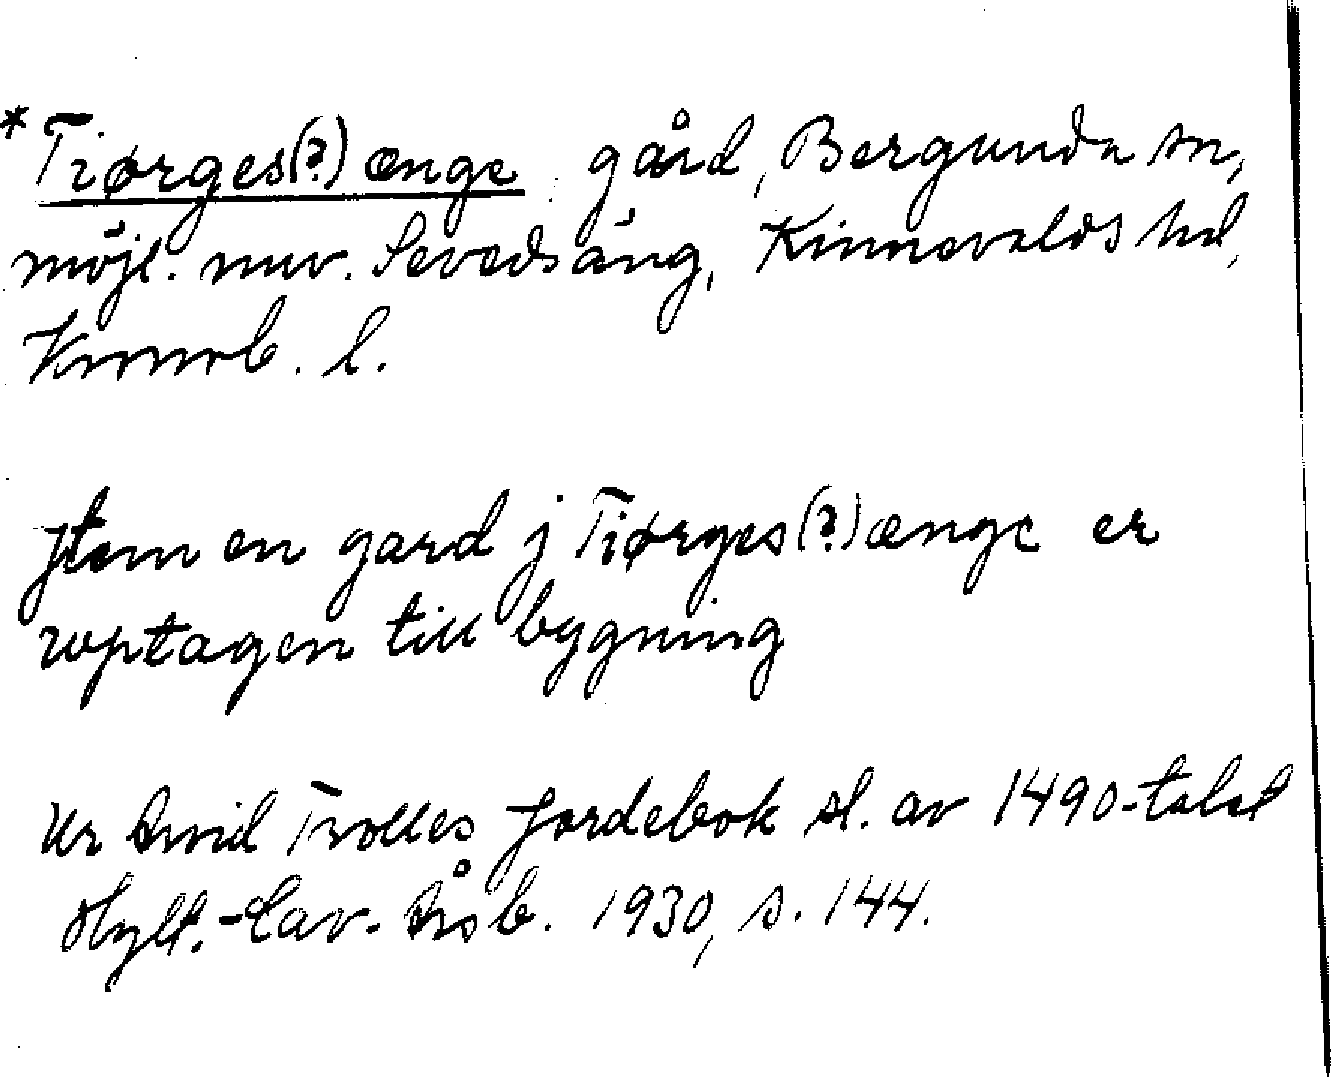 *Tiørges(?)ænge gård, Bergunda sn,
möjl. nuv. Sevedsäng, Kinnevalds hd,
Kronob. l.
Jtem en gard j Tiørges(?)ænge er
wptagen till bygning
Ur Arvid Trolles Jordebok sl. av 1490-talet
Hylt.-Cav. Årsb. 1930, s. 144.